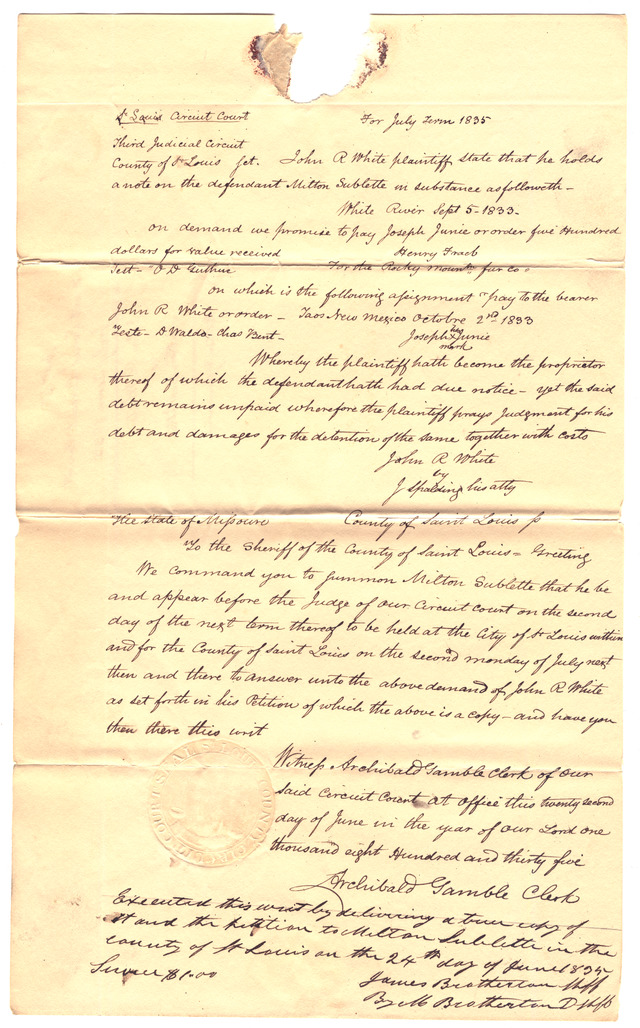 St Louis Circuit Court For July Term 1835
Third Judicial Circuit
County of St Louis Sct. John R White plaintiff state that he holds
a note on the defendant Milton Sublette in substance as followeth –
White River Sept 5 – 1833 –
on demand we promise to pay Joseph Junie or order five Hundred
dollars for value received Henry Fraeb
Test – O D Guthrie For the Rocky Mountn fur co =
on which is the following assignment pay to the bearer
John R White or order – Taos New Mexico Octobre 2nd 1833
Teste – D Waldo – Chas Bent – Joseph his x mark Junie
Whereby the plaintiff hath become the proprietor
thereof of which the defendant hath had due notice – yet the said
debt remains unpaid wherefore the plaintiff prays Judgment for his
debt and damages for the detention of the same together with costs
John R White
by
J Spalding his atty
The State of Missouri County of Saint Louis
To the Sheriff of the County of Saint Louis = Greeting
We command you to summon Milton Sublette that he be
and appear before the Judge of our Circuit Court on the second
day of the next term thereof to be held at the City of St Louis within
and for the County of Saint Louis on the second monday of July next
then and there to answer unto the above demand of John R White
as set forth in his Petition of which the above is a copy – and have you
then there this writ
Witness Archibald Gamble Clerk of our
said Circuit Court at office this twenty second
day of June in the year of our Lord one
thousand eight Hundred and thirty five
Archibald Gamble Clerk
Executed this writ by delivering a true copy of
it and the petition to Milton Sublette in the
county of St Louis on the 24th day of June 1835
Service $1.00 James Brotherton Shff
By M Brotherton D Shff